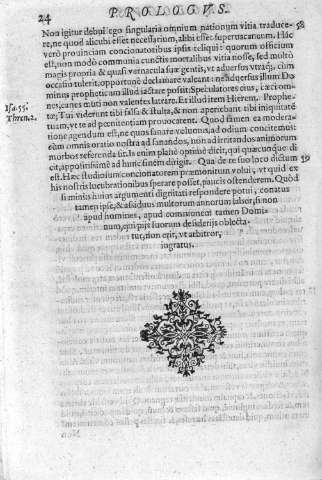 24 PROLOGVS.
Non igitur debui ego singularia omnium nationum vitia traduce- 58
re, ne quod alicubi esset necessarium, alibi esset superuacaneum. Hāc
verò prouinciam concionatoribus ipsis reliqui: quorum officium
est, non modò communia cunctis mortalibus vitia nosse, sed multò
magis propria & quasi vernacula suæ gentis, vt aduersus vtraq́;, cùm
occasio tulerit, opportunè declamare valeant: ne aduersus illum Do-
minus propheticum illud iactare possit. Speculatores eius, cæci om-
nes, canes muti non valentes latrare. Et illud item Hierem. Prophe-
tæ, Tui viderunt tibi falsa & stulta, & non aperiebant tibi iniquitatē
tuam, vt te ad pœnitentiam prouocarent. Quod tamen ea modera-
tione agendum est, ne quos sanare volumus, ad odium concitemus:
cùm omnis oratio nostra ad sanandos, non ad irritandos animorum
morbos referenda sit. Is enim planè optimè dicit, qui quæcunque di
cit, appositissimè ad hunc finem dirigit. Qua de re suo loco dictum 59
est. Hæc studiosum concionatorem præmonitum volui, vt quid ex
his nostris lucubrationibus sperare posset, paucis ostenderem. Quòd
si minùs huius argumenti dignitati respondere potui, conatus
tamen ipse, & assiduus multorum annorum labor, si non
apud homines, apud communem tamen Domi-
num, qui pijs suorum desiderijs oblecta-
tur, non erit, vt arbitror,
ingratus.
Isa. 55.
Thren. 2.